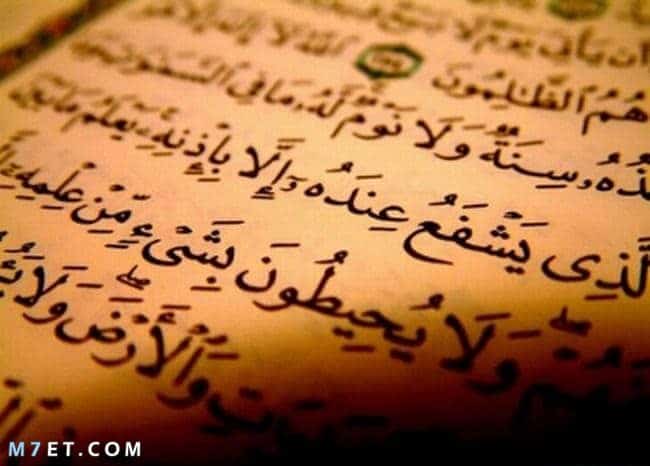 أَن يَأْتِىَ يَوْمٌ لَّا بَيْعٌ
هُمُ ٱلظَّٰلِمُونَ ٱللَّهُ لَآ إِلَٰهَ إِلَّا هُوَ
خُذُهُۥ سِنَةٌ وَلَا نَوْمٌ لَّهُۥ مَا فِى ٱلسَّمَٰوَٰتِ
ٱلَّذِى يَشْفَعُ عِندَهُۥٓ إِلَّا بِإِذْنِهِۦ يَعْلَمُ مَا بَيْنَ
فَهُمْ وَلَا يُحِيطُونَ بِشَىْءٍ مِّنْ عِلْمِهِۦٓ
وَٱلْأَرْضَ وَلَا
M7ET.COM